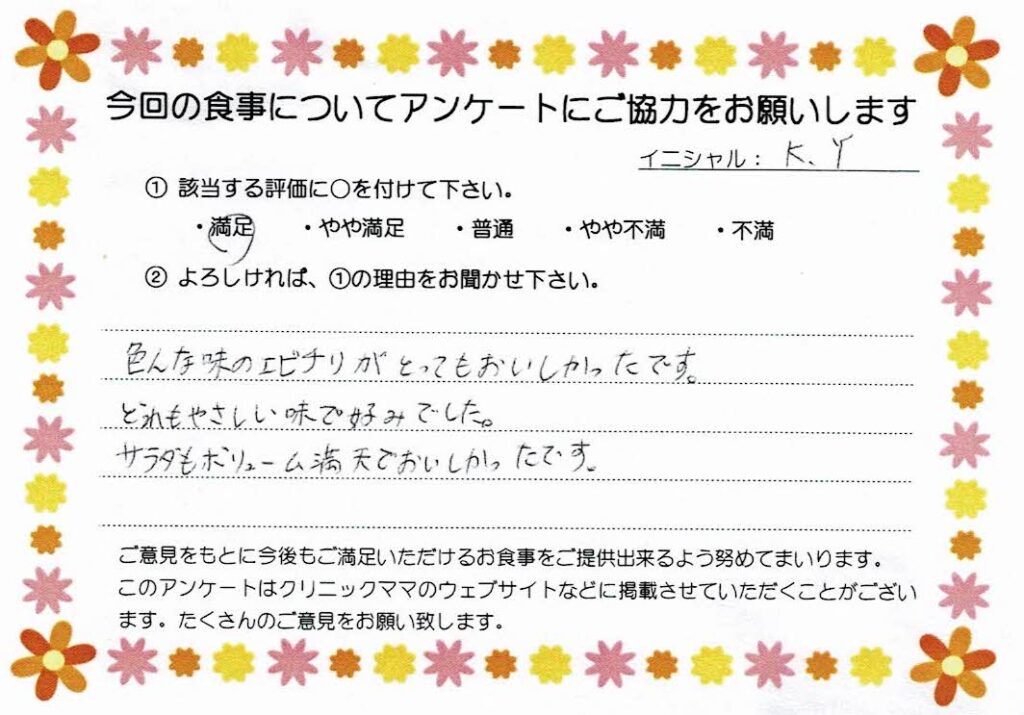 今回の食事についてアンケートにご協力をお願いします
イニシャル： K、Y
① 該当する評価に○を付けて下さい。
・満足 ・やや満足 ・普通 ・やや不満 ・不満
② よろしければ、①の理由をお聞かせ下さい。
色んな味のエビチリがとってもおいしかったです。
どれもやさしい味で好みでした。
サラダもボリューム満天でおいしかったです。
ご意見をもとに今後もご満足いただけるお食事をご提供出来るよう努めてまいります。
このアンケートはクリニックママのウェブサイトなどに掲載させていただくことがござい
ます。たくさんのご意見をお願い致します。